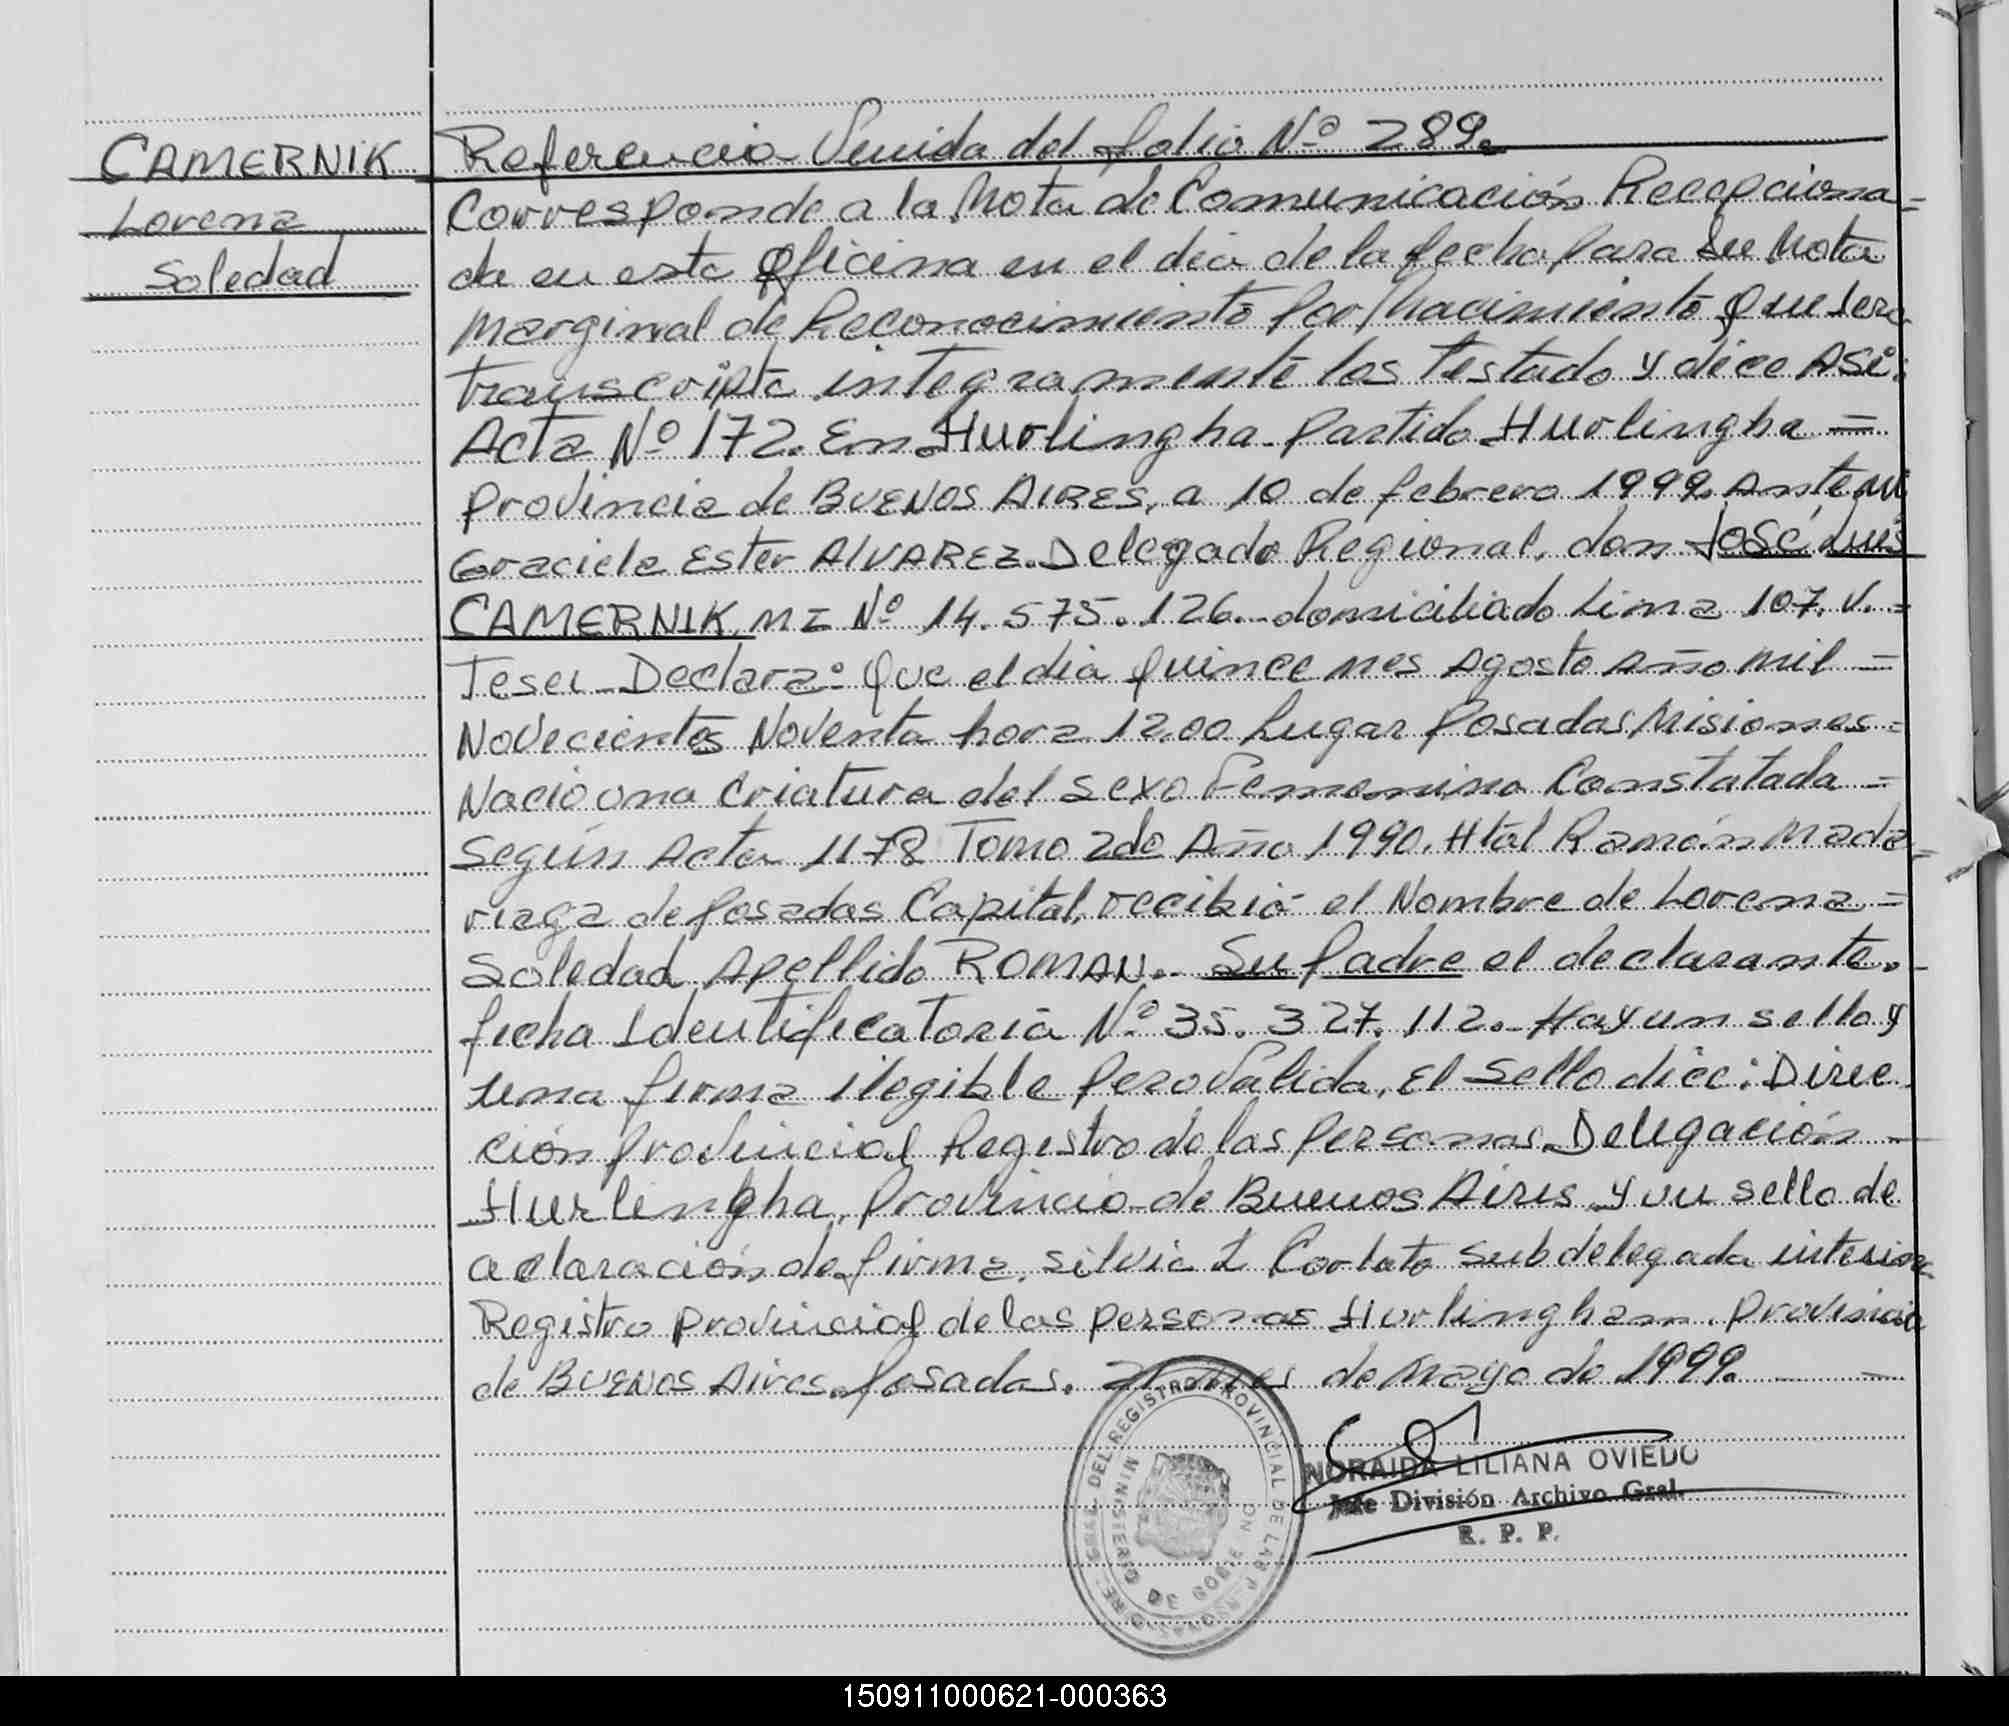 CAMERNIK
Lorena
Soledad
Referencia Venida del folio Nº 289.
Corresponde a la Nota de Comunicación Recepciona=
da en esta Oficina en el dia de la fecha para su Nota
Marginal de Reconocimiento por/Nacimiento que sera
transcripta integramente los Testado y dice ASi:
Acta Nº 172. En Hurlingha Partido Hurlingha =
Provincia de BUENOS AIRES, a 10 de febrero 1999. Ante mi
Graciela Ester ALVAREZ. Delegado Regional, don José Luis
CAMERNIK, MI Nº 14.575.126.- domiciliado Lima 107. V. =
Tesei - Declara: Que el dia quince mes Agosto Año mil =
Novecientos Noventa hora 12,00 Lugar Posadas Misiones =
Nacio una criatura del sexo Femenino Constatada =
Según Acta 1178 Tomo 2do Año 1990. Htal Ramón Mada=
riaga de Posadas Capital, recibió el Nombre de Lorena =
Soledad, Apellido ROMAN.- Su Padre el declarante.-
ficha Identificatoria Nº 35.327.112.- Hay un sello y
una firma ilegible pero Valida, El Sello dice: Direc
ción Provincial Registro de las Personas. Delegación -
Hurlingha, Provincia de Buenos Aires y un sello de
aclaración de firma, Silvia L Corlato Subdelegada interina
Registro Provincial de las Personas Hurlingham. Provincia
de BUENOS Aires. Posadas, de Mayo de 1999.
DEL REGISTRO PROVINCIAL DE LAS PERSONAS
MINISTERIO DE GOBIERNO
NORAIDA LILIANA OVIEDO
Jefe División Archivo Gral.
R. P. P.
150911000621-000363